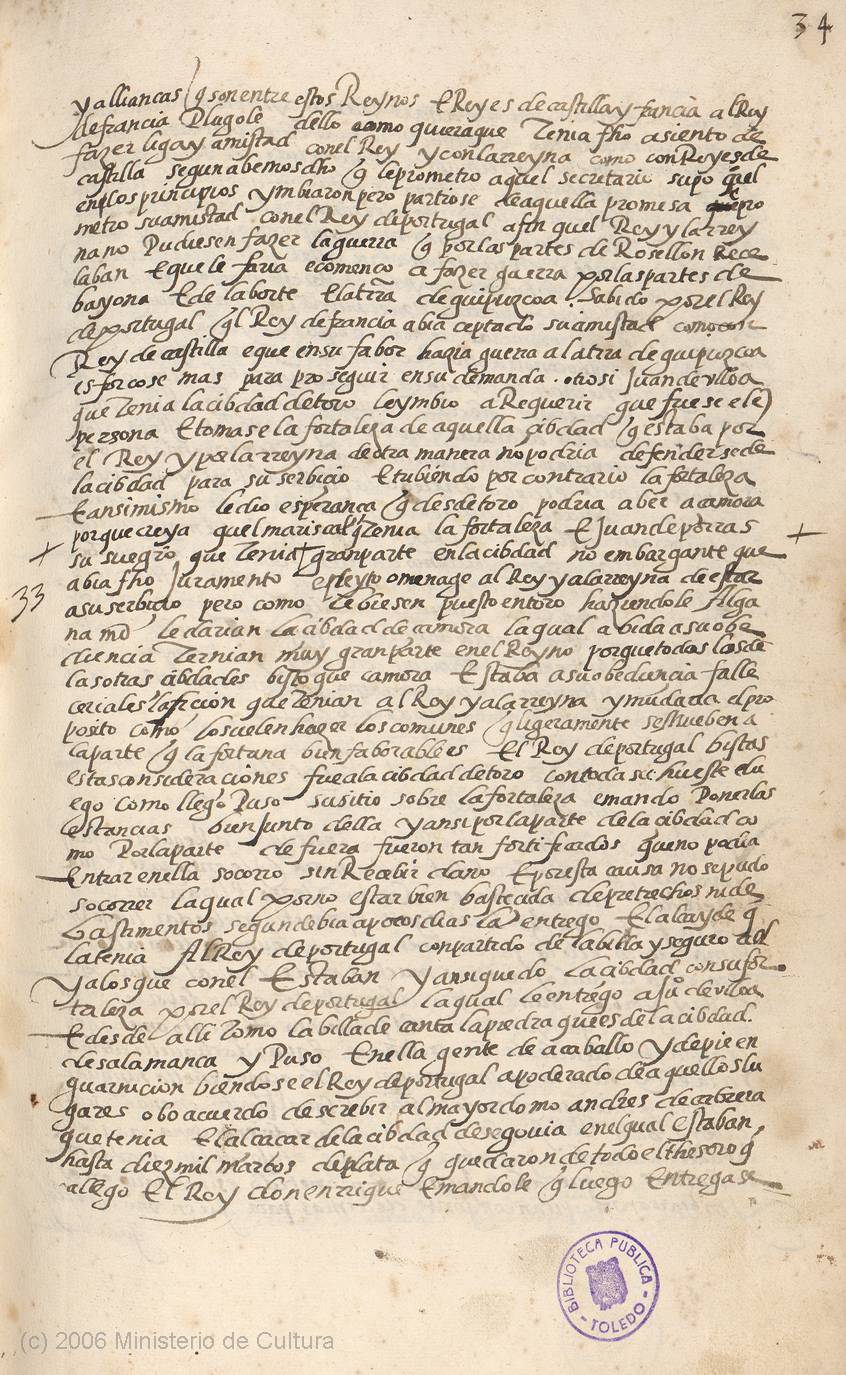 34
y alliancas q son entre estos Reynos E Reyes de castilla y francia al Rey
de francia Plugole dello como quiera que Tenia fho asiento de
fazer liga y amistad con el Rey y con la rreyna como con Reyes de
castilla segun abemos dho q le prometro aquel secretario supo quel
en los principios ymbiaron pero partiose de aquella promesa pro
metro su amistad con el Rey de portugal a fin quel Rey y la rrey
na no Pudiesen fazer la guerra q por las partes de Rosellon Rece
laban E que le faria e començo a fazer guerra por las partes de
bayona E de laborte E la trra de guipuzcoa. Sabido por el Rey
de portugal ql Rey de francia abia ceptado su amistad como con
Rey de castilla e que en su fabor hazia guerra a la trra de guipuzcoa
esforcose mas para proseguir en su demanda. otrosi Juan de ulloa
que Tenia la cibdad de toro le ymbio a Requerir que fuese el e
persona E tomase la fortaleza de aquella cibdad q estaba por
el Rey y por la rreyna de otra manera no podria defenderse de
la cibdad para su serbicio E tubiendo por contrario la fortaleza
E ansimismo le dio esperança q desde toro podria aber a camora
porque creya quel mariscal q Tenia la fortaleza E Juan de porras
su suegro que Tenia gran parte en la cibdad no embargante que
33
abia fho Juramento e pleyto omenage al Rey y a la rreyna de estar
a su serbicio pero como le biesen puesto en toro haziendole Alga
na md le darian la cibdad de camora la qual abida a su obe
diencia Ternian muy gran parte en el Reyno porque todos los de
las otras cibdades bisto que camora Estaba a su obediencia falle
cerialesla aficion q Tenian al Rey y a la rreyna y mudada el pro
posito como lo suelen hazer los comunes q ligeramente se mueben a
la parte q la fortuna bien faborable es El Rey de portugal bistas
estas consideraciones fue a la cibdad de toro con toda su hueste e lu
ego como llego Puso su sitio sobre la fortaleza e mando Poner las
estancias bien Junto della y ansi por la parte de la cibdad co
mo Por la parte de fuera fueron tan fortificados que no podia
Entrar en ella socorro sin Recebir daño E por esta causa no se pudo
socorrer la qual por no estar bien bastecida de pretrechos ni de
bastimentos segun debia a pocos dias la entrego El alcayde q
la tenia Al Rey de portugal con partido de la bida y seguro a el
y a los que con el Estaban y ansi quedo la cibdad con su for
taleza por el Rey de portugal la qual le entrego a Juº de ulloa
E desde alli Tomo la billa de cantalapiedra que es de la cibdad.
de salamanca y Puso En ella gente de a caballo y de pie en
guarnicion biendose el Rey de portugal apoderado de aquellos lu
gares obo acuerdo de screbir al mayordomo andres de cabrera
que tenia El alcacar de la cibdad de segovia en el qual Estaban
hasta diez mil marcos de plata q quedaron de todo el thesoro q
allego El Rey don enrrique E mandole q luego Entregase
BIBLIOTECA PUBLICA
TOLEDO
(c) 2006 Ministerio de Cultura